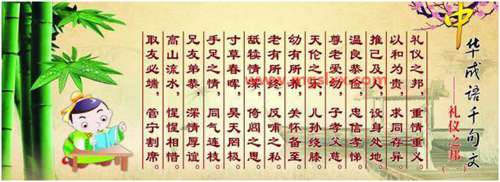 中华成语千句文
——礼仪之邦
礼仪之邦，重情重义。
以和为贵，求同存异。
推己及人，设身处地。
温良恭俭，忠信孝悌。
尊老爱幼，子孝父慈。
天伦之乐，儿孙绕膝。
幼有所养，关怀备至。
老有所终，反哺之
舐犊情深，倚闾之思。
寸草春晖，昊天罔极。
手足之情，同气连枝。
兄友弟恭，深情厚谊。
高山流水，惺惺相惜。
取友必端，管宁割席。